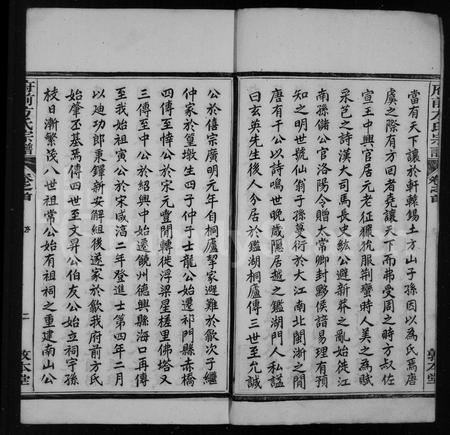 當有天下讓於軒轅錫土方山子孫因以為氏焉唐
虞之際有方回者堯讓天下而弗受周之時方叔佐
宣王中興官居元老征玁狁服荊蠻時人美之為賦
采芑之詩漢大司馬長史紘公避新莽之亂始徙江
南孫儲公官洛陽令贈太常卿封黟侯諳易理有預
知之明世號仙翁子孫蔓衍於大江南北閩浙之間
唐有干公以詩鳴世晚歲隱居越之鑑湖門人私諡
曰玄英先生後人分居於鑑湖桐廬傳三世至九誠
府前方氏宗譜
卷之首
敦本堂
公於僖宗廣明元年自桐廬挈家避難於歙次子繼
仲家於篁墩生四子仲子士龍公始遷祁門縣赤橋
四傳至悼公於宋元豐間轉徙浮梁星槎里佛塔又
三傳至中公於紹興中始遷饒州德興縣海口再傳
至我始祖寅公於宋咸淳二年登進士第四年二月
以迪功郎秉鐸新安解組後遂家於歙我府前方氏
始肇丕基焉傳四世至文昇公伯友公始立祠宇孫
枝日漸繁茂八世祖常公始有祖祠之重建南山公
府前方氏宗譜
卷之首
二
敦本堂